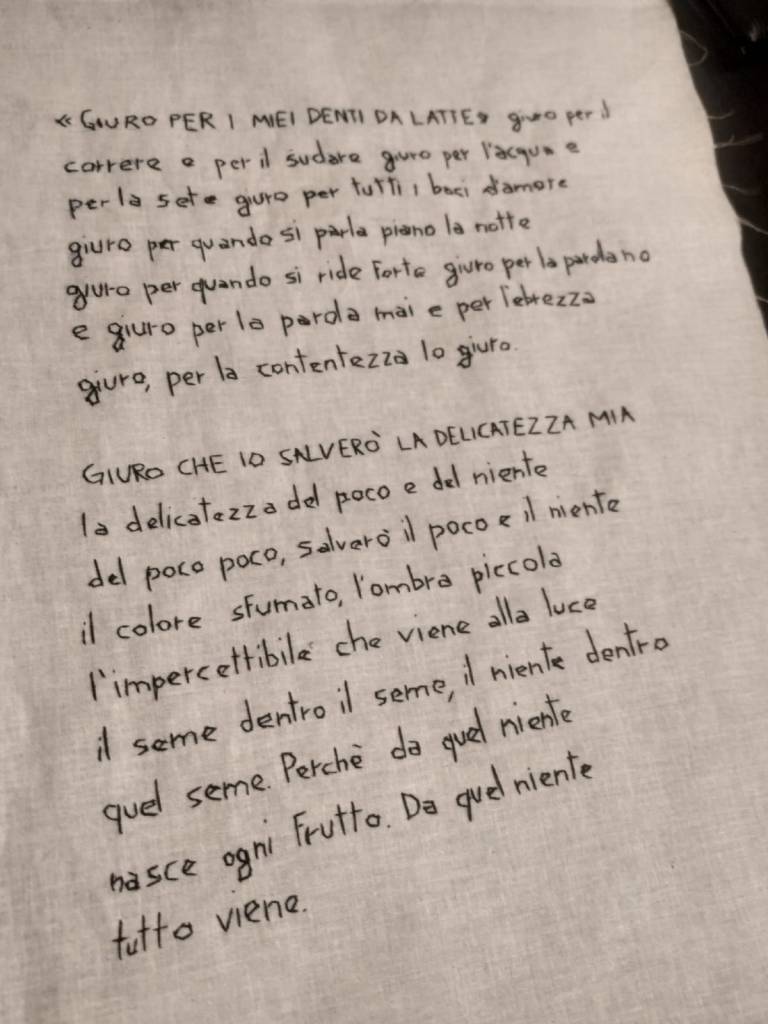 « GIURO PER I MIEI DENTI DA LATTE» giuro per il
correre e per il sudare giuro per l'acqua e
per la sete giuro per tutti i baci d'amore
giuro per quando si parla piano la notte
giuro per quando si ride forte giuro per la parola no
e giuro per la parola mai e per l'ebrezza
giuro, per la contentezza lo giuro.
GIURO CHE IO SALVERÒ LA DELICATEZZA MIA
la delicatezza del poco e del niente
del poco poco, salverò il poco e il niente
il colore sfumato, l'ombra piccola
l'impercettibile che viene alla luce
il seme dentro il seme, il niente dentro
quel seme. Perchè da quel niente
nasce ogni frutto. Da quel niente
tutto viene.